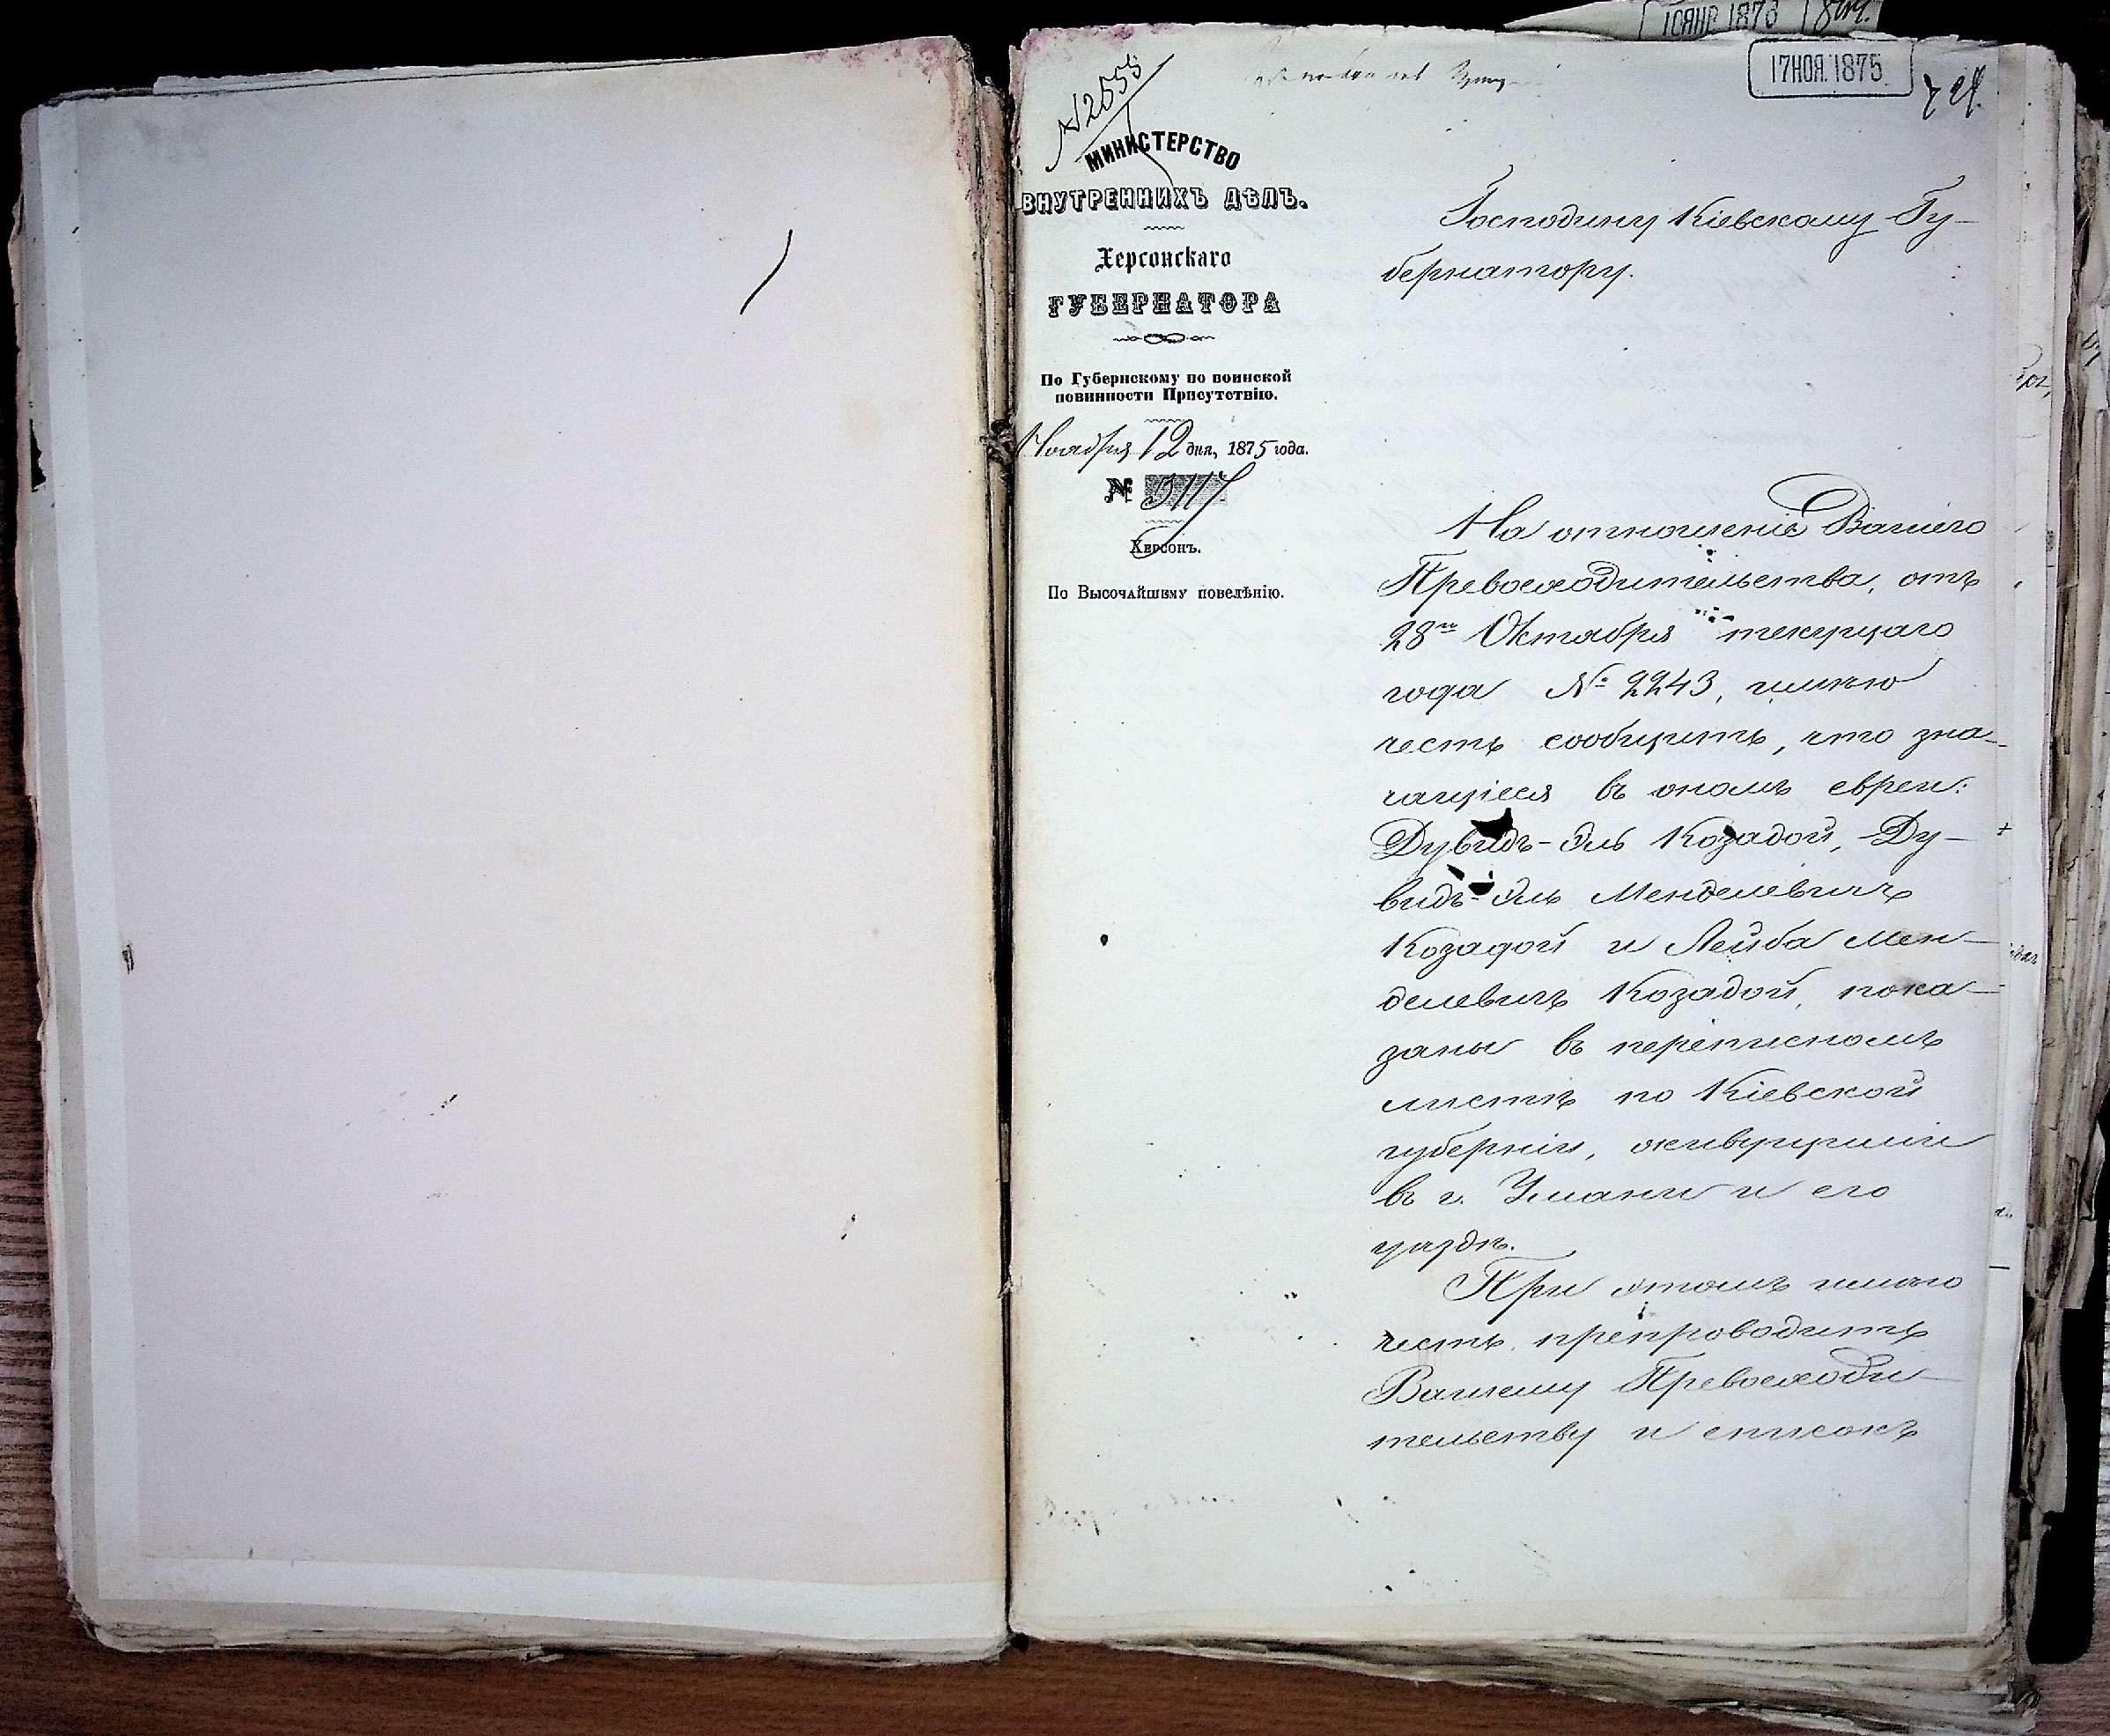 10 ЯНР 1876
17 НОЯ. 1875
№ 2555
МИНИСТЕРСТВО
ВНУТРЕННИХЪ ДѢЛЪ.
Херсонскаго
ГУБЕРНАТОРА
По Губернскому по воинской
повинности Присутствію.
Ноября 12 дня, 1875 года.
№ 3117
Херсонъ.
По Высочайшему повелѣнію.
Господину Кіевскому Гу-
бернатору.
На отношеніе Вашего
Превосходительства, отъ
28го Октября текущаго
года № 2243, имѣю
честь сообщить, что зна-
чащіеся въ ономъ евреи:
Дувидъ-Эль Козадой, Ду-
видъ-Эль Менделевичъ
Козадой и Лейба Мен-
делевичъ Козадой, пока-
заны въ переписномъ
листѣ по Кіевской
губерніи, живущими
въ г. Умани и его
уѣздѣ.
При этомъ имѣю
честь препроводить
Вашему Превосходи-
тельству и списокъ